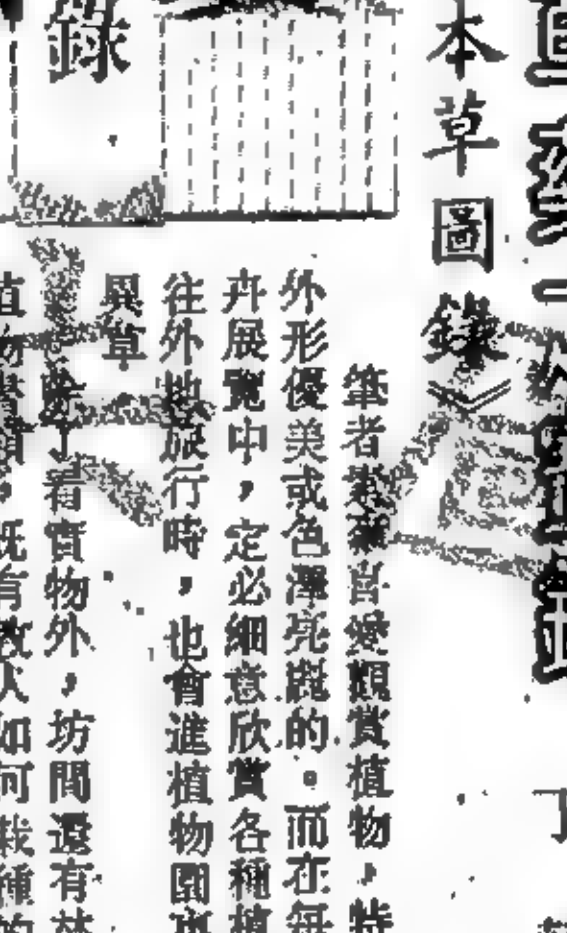 本草圖錄》
錄
筆者素來喜愛觀賞植物，特
外形優美或色澤亮麗的。而在每
卉展覽中，定必細意欣賞各種植
往外地旅行時，也會進植物園
異草
除了看實物外，坊間還有
植物書類，既有教人如何栽種的